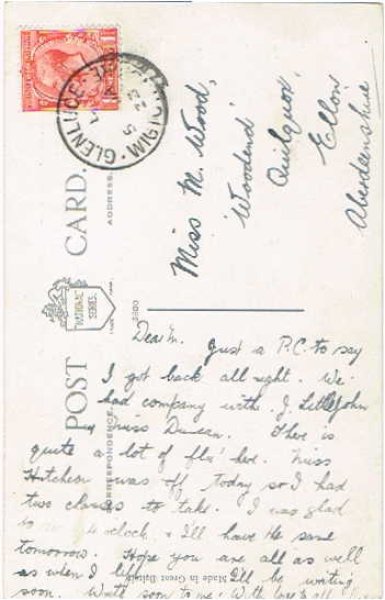 POST CARD.
CORRESPONDENCE.
ADDRESS
NATIONAL SERIES
Made in Great Britain
GLENLUCE
WIGTOWN
23
Miss M. Wood,
'Woodend'
Quilquox,
Ellon
Aberdeenshire
Dear M. Just a P.C. to say
I got back all right. We
had company with J. Littlejohn
Miss Duncan. There is
quite a lot of flu' here. Miss
Hutcheon was off today so I had
two classes to take. I was glad
o'clock, & I'll have the same
tomorrow. Hope you are all as well
as when I left. I'll be writing
soon. Write soon to me. With love to all